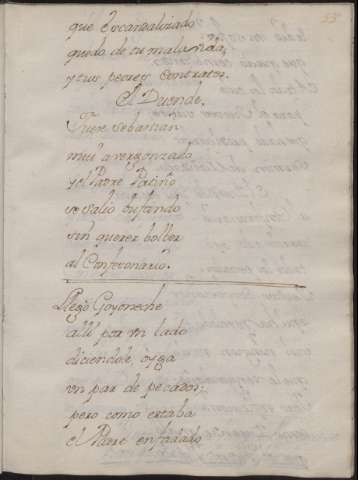 53
que escandalizado
quedo de tu mala vida,
y tus peores contratos.
El Duende.
Fuese Sebastian
mui avergonzado
y el Padre Patiño
se salio bufando
sin querer bolber
al Confesonario.
Llegó Goyoneche
allí por un lado
diciendole, oyga
un par de pecados;
pero como estaba
el Padre enfadado